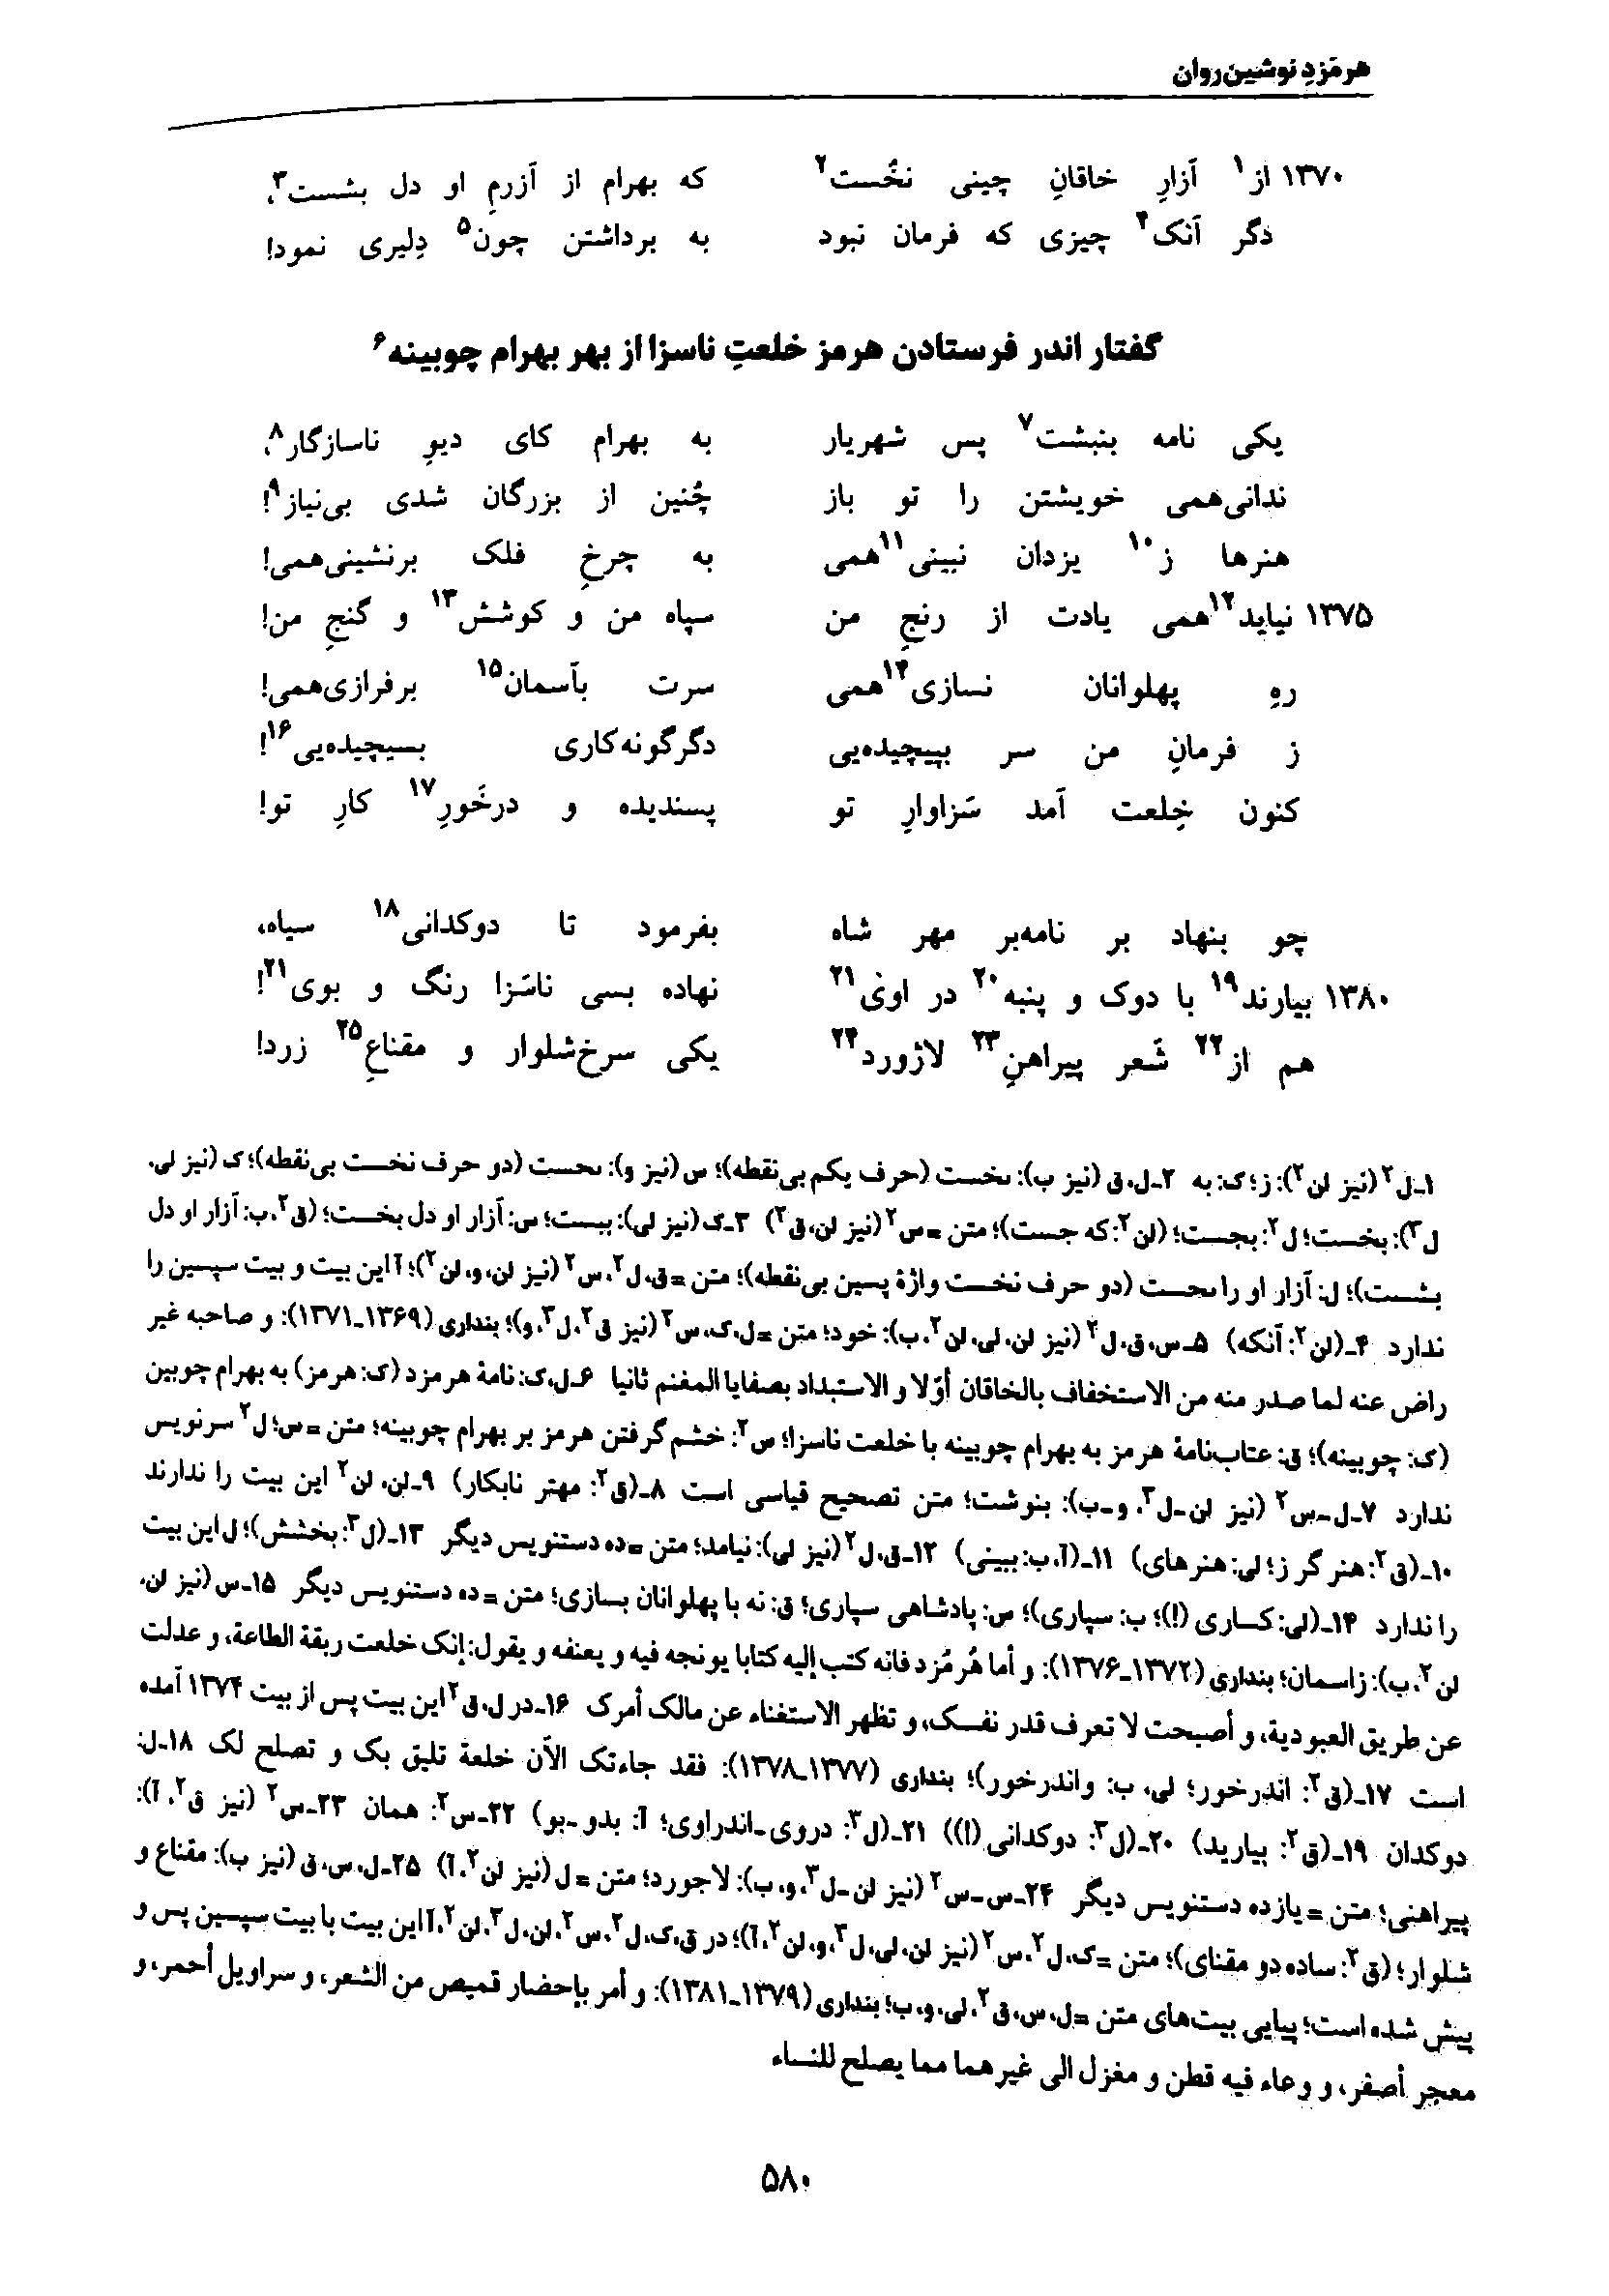 هرمَزدِ نوشین‌روان
۱۳۷۰ از۱ آزارِ خاقانِ چینی نخُست۲ که بهرام از آزرمِ او دل بشست۳،
دگر آنک۴ چیزی که فرمان نبود به برداشتن چون۵ دِلیری نمود!
گفتار اندر فرستادن هرمز خلعتِ ناسزا از بهر بهرام چوبینه۶
یکی نامه بنبشت۷ پس شهریار به بهرام کای دیوِ ناسازگار۸،
ندانی‌همی خویشتن را تو باز چُنین از بزرگان شدی بی‌نیاز۹!
هنرها ز۱۰ یزدان نبینی۱۱همی به چرخِ فلک برنشینی‌همی!
۱۳۷۵ نیاید۱۲همی یادت از رنجِ من سپاه من و کوشش۱۳ و گنجِ من!
رهِ پهلوانان نسازی۱۴همی سرت بآسمان۱۵ برفرازی‌همی!
ز فرمانِ من سر بپیچیده‌یی دگرگونه‌کاری بسیچیده‌یی۱۶!
کنون خِلعت آمد سَزاوارِ تو پسندیده و درخَورِ۱۷ کارِ تو!
چو بنهاد بر نامه‌بر مهر شاه بفرمود تا دوکدانی۱۸ سیاه،
۱۳۸۰ بیارند۱۹ با دوک و پنبه۲۰ در اوی۲۱ نهاده بسی ناسَزا رنگ و بوی۲۱!
هم از۲۲ شَعر پیراهنِ۲۳ لاژورد۲۴ یکی سرخ‌شلوار و مقناعِ۲۵ زرد!
۱ـ ل۲ (نیز لن۲): ز؛ ک: به ۲ـ ل، ق (نیز ب): نخست (حرف یکم بی‌نقطه)؛ س (نیز و): نحست (دو حرف نخست بی‌نقطه)؛ ک (نیز لی،
ل۳): بخست؛ ل۲: بجست؛ (لن۲: که جست)؛ متن = س۲ (نیز لن، ق۲) ۳ـ ک (نیز لی): ببست؛ س: آزار او دل بخست؛ (ق۲، ب: آزار او دل
بشست)؛ ل: آزار او را نحست (دو حرف نخست واژهٔ پسین بی‌نقطه)؛ متن = ق، ل۲، س۲ (نیز لن، و، لن۲)؛ آ این بیت و بیت سپسین را
ندارد ۴ـ (لن۲: آنکه) ۵ـ س، ق، ل۲ (نیز لن، لی، لن۲، ب): خود؛ متن = ل، ک، س۲ (نیز ق۲، ل۳، و)؛ بنداری (۱۳۶۹ـ۱۳۷۱): و صاحبه غیر
راض عنه لما صدر منه من الاستخفاف بالخاقان أوّلا و الاستبداد بصفایا المغنم ثانیا ۶ـ ل، ک: نامهٔ هرمزد (ک: هرمز) به بهرام چوبین
(ک: چوبینه)؛ ق: عتاب‌نامهٔ هرمز به بهرام چوبینه با خلعت ناسزا؛ س۲: خشم گرفتن هرمز بر بهرام چوبینه؛ متن = س؛ ل۲ سرنویس
ندارد ۷ـ ل ـ س۲ (نیز لن ـ ل۳، و ـ ب): بنوشت؛ متن تصحیح قیاسی است ۸ـ (ق۲: مهتر نابکار) ۹ـ لن، لن۲ این بیت را ندارند
۱۰ـ (ق۲: هنر گر ز؛ لی: هنرهای) ۱۱ـ (آ، ب: ببینی) ۱۲ـ ق، ل۲ (نیز لی): نیامد؛ متن = ده دستنویس دیگر ۱۳ـ (ل۳: بخشش)؛ ل این بیت
را ندارد ۱۴ـ (لی: کساری (!)؛ ب: سپاری)؛ س: پادشاهی سپاری؛ ق: نه با پهلوانان بسازی؛ متن = ده دستنویس دیگر ۱۵ـ س (نیز لن،
لن۲، ب): زاسمان؛ بنداری (۱۳۷۲ـ۱۳۷۶): و أما هُرمُزد فانه کتب إلیه کتابا یونجه فیه و یعنفه و یقول: إنک خلعت ربقة الطاعة، و عدلت
عن طریق العبودیة، و أصبحت لا تعرف قدر نفسک، و تظهر الاستغناء عن مالک أمرک ۱۶ـ در ل، ق۲ این بیت پس از بیت ۱۳۷۴ آمده
است ۱۷ـ (ق۲: اندرخور؛ لی، ب: واندرخور)؛ بنداری (۱۳۷۷ـ۱۳۷۸): فقد جاءتک الآن خلعة تلیق بک و تصلح لک ۱۸ـ ل:
دوکدان ۱۹ـ (ق۲: بیارید) ۲۰ـ (ل۳: دوکدانی (!)) ۲۱ـ (ل۳: دروی ـ اندراوی؛ آ: بدو ـ بو) ۲۲ـ س۲: همان ۲۳ـ س۲ (نیز ق۲، آ):
پیراهنی؛ متن = یازده دستنویس دیگر ۲۴ـ س ـ س۲ (نیز لن ـ ل۳، و، ب): لاجورد؛ متن = ل (نیز لن۲، آ) ۲۵ـ ل، س، ق (نیز ب): مقناع و
شلوار؛ (ق۲: ساده دو مقنای)؛ متن = ک، ل۲، س۲ (نیز لن، لی، ل۳، و، لن۲، آ)؛ در ق، ک، ل۲، س۲، لن، ل۳، لن۲، آ این بیت با بیت سپسین پس و
پیش شده است؛ پیاپی بیت‌های متن = ل، س، ق۲، لی، و، ب؛ بنداری (۱۳۷۹ـ۱۳۸۱): و أمر بإحضار قمیص من الشعر، و سراویل أحمر، و
معجر أصفر، و وعاء فیه قطن و مغزل الی غیرهما مما یصلح للنساء
۵۸۰